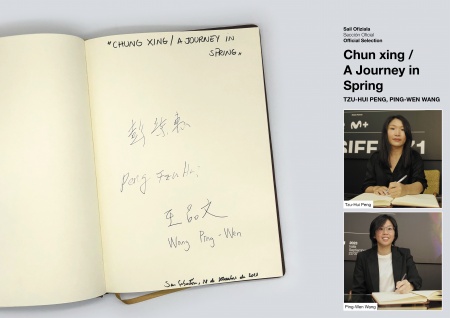 "CHUNG XING / A JOURNEY IN
SPRING"
彭紫惠
Peng Tzu Hui
王品文
Wang Ping-Wen
San Sebastián, de de 2023
Sail Ofiziala
Sección Oficial
Official Selection
Chun xing /
A Journey in
Spring
TZU-HUI PENG, PING-WEN WANG
M+
Tzu-Hui Peng
Ping-Wen Wang